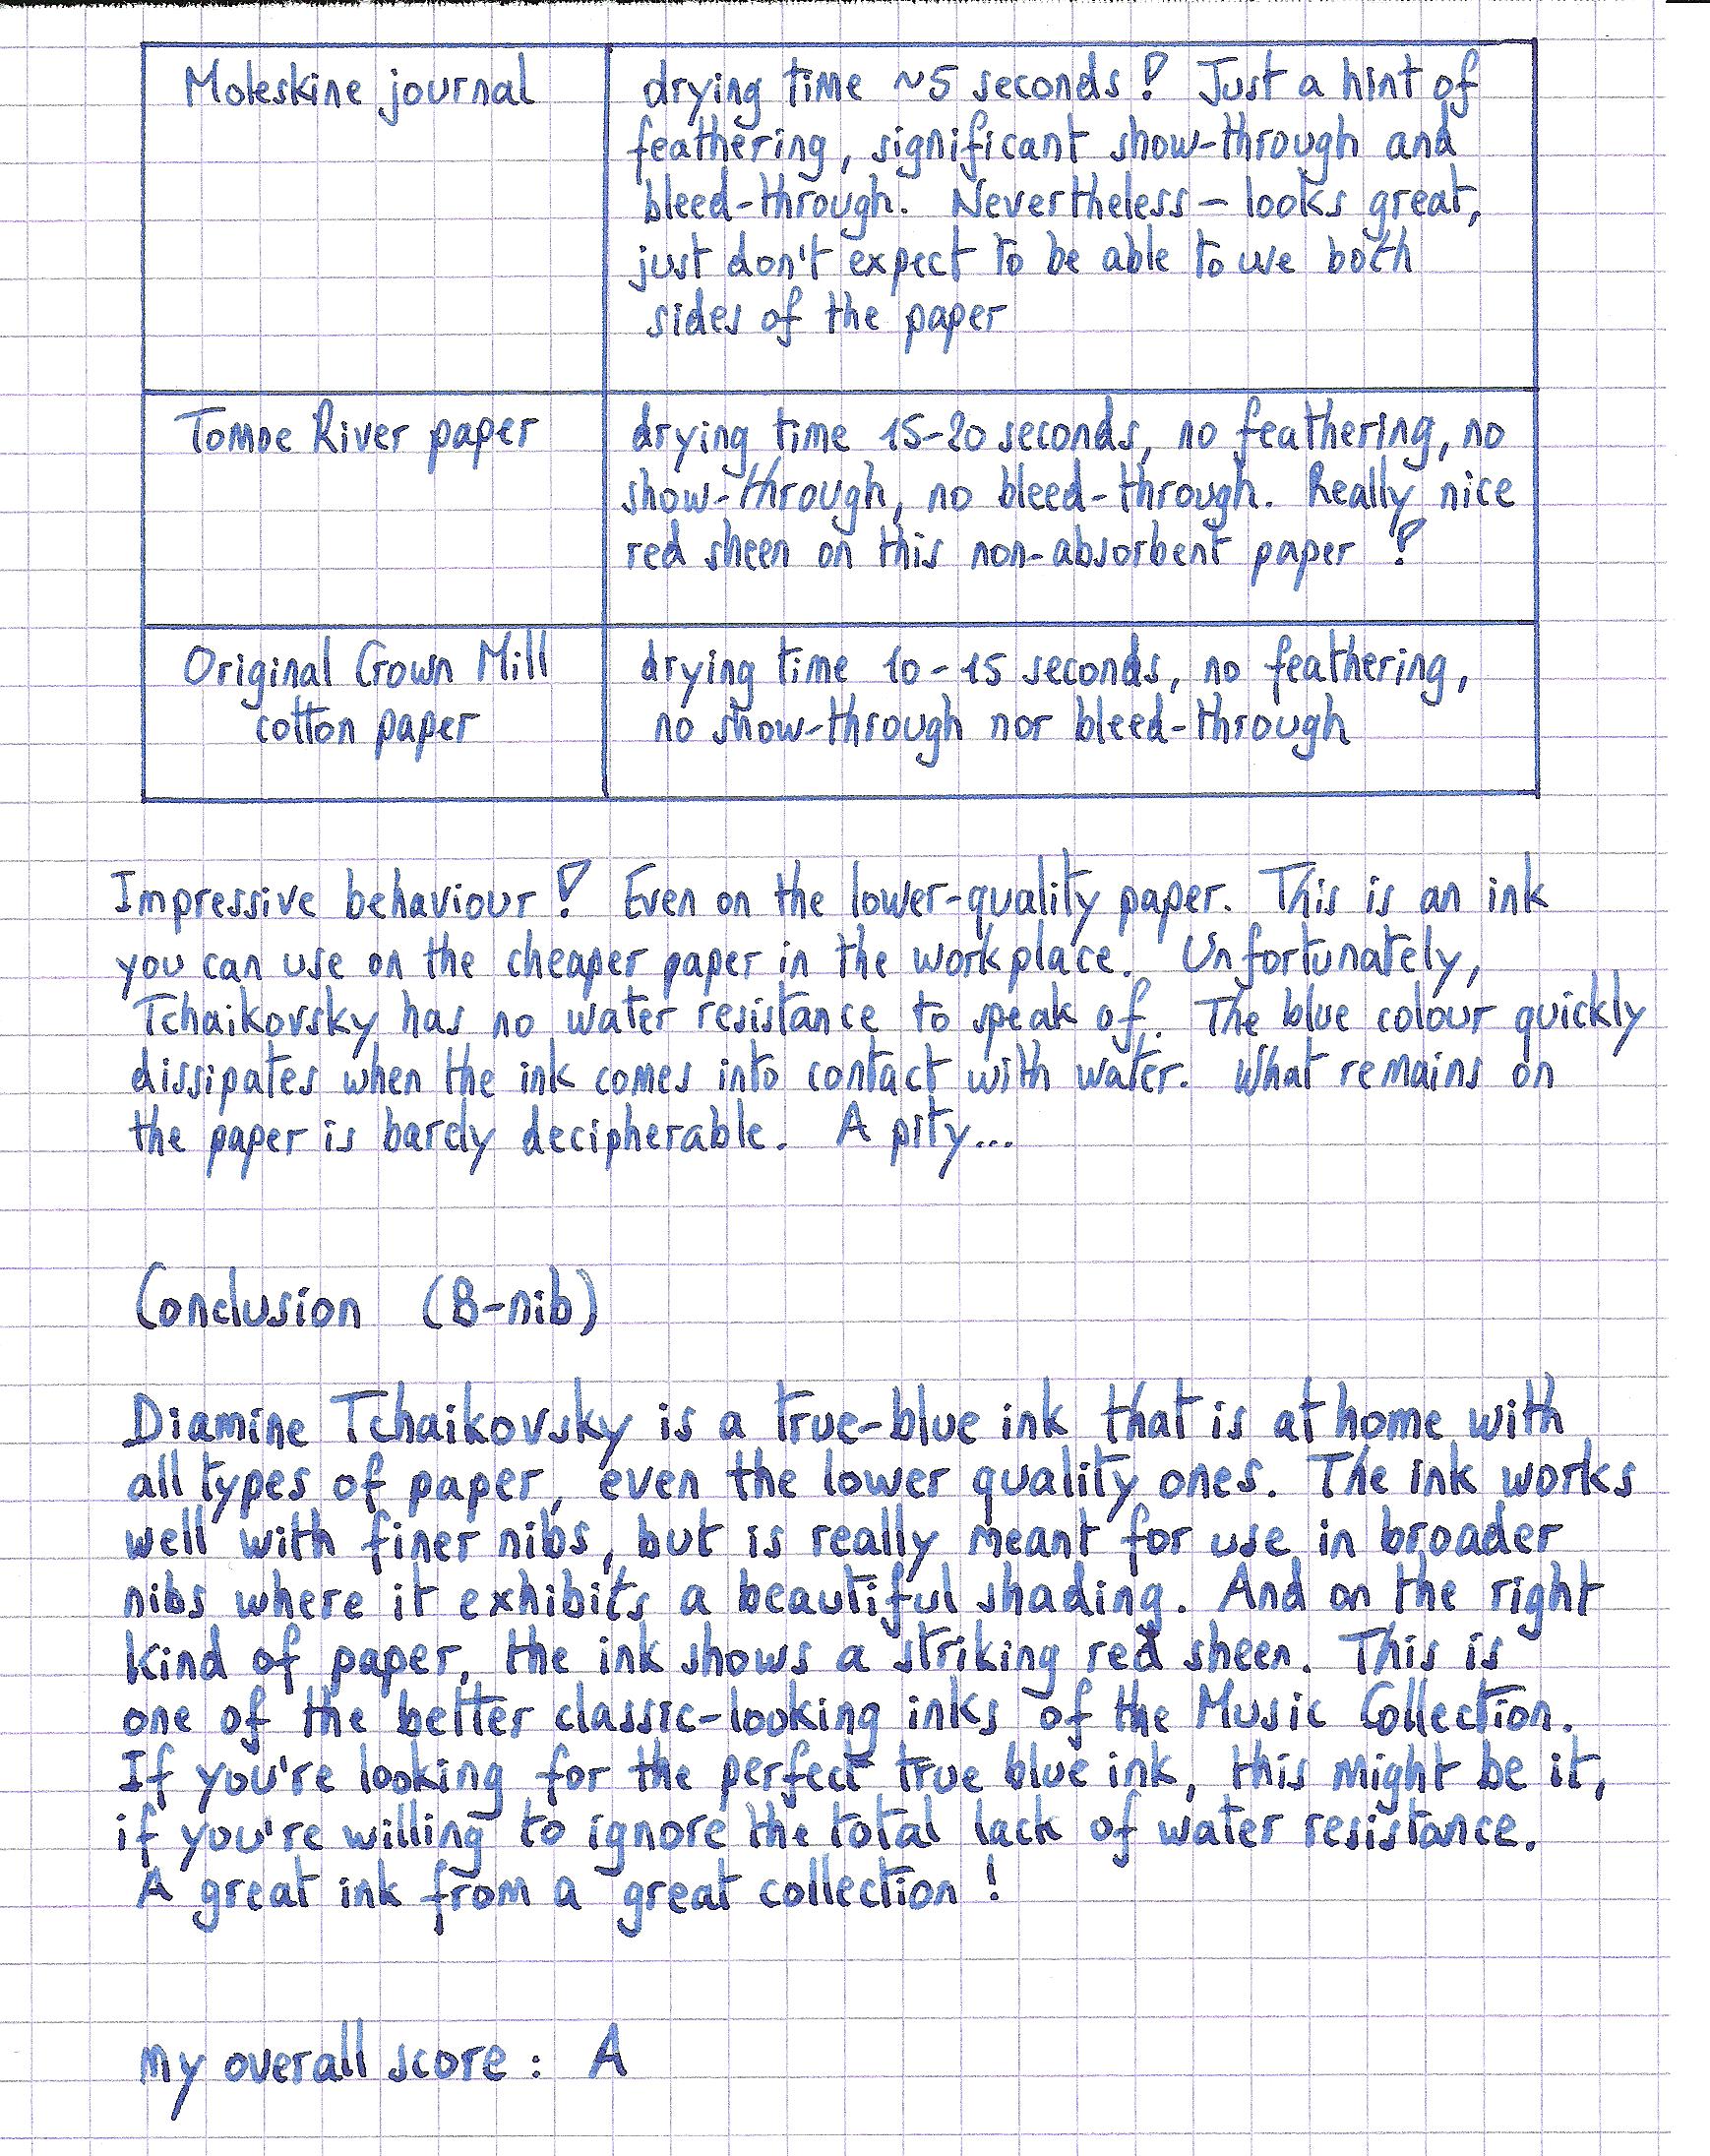 Moleskine journal
drying time ~5 seconds! Just a hint of
feathering, significant show-through and
bleed-through. Nevertheless - looks great,
just don't expect to be able to use both
sides of the paper
Tomoe River paper
drying time 15-20 seconds, no feathering, no
show-through, no bleed-through. Really nice
red sheen on this non-absorbent paper!
Original Crown Mill
cotton paper
drying time 10-15 seconds, no feathering,
no show-through nor bleed-through
Impressive behaviour! Even on the lower-quality paper. This is an ink
you can use on the cheaper paper in the workplace. Unfortunately,
Tchaikovsky has no water resistance to speak of. The blue colour quickly
dissipates when the ink comes into contact with water. What remains on
the paper is barely decipherable. A pity...
Conclusion (B-nib)
Diamine Tchaikovsky is a true-blue ink that is at home with
all types of paper, even the lower quality ones. The ink works
well with finer nibs, but is really meant for use in broader
nibs where it exhibits a beautiful shading. And on the right
kind of paper, the ink shows a striking red sheen. This is
one of the better classic-looking inks of the Music Collection.
If you're looking for the perfect true blue ink, this might be it,
if you're willing to ignore the total lack of water resistance.
A great ink from a great collection!
my overall score: A